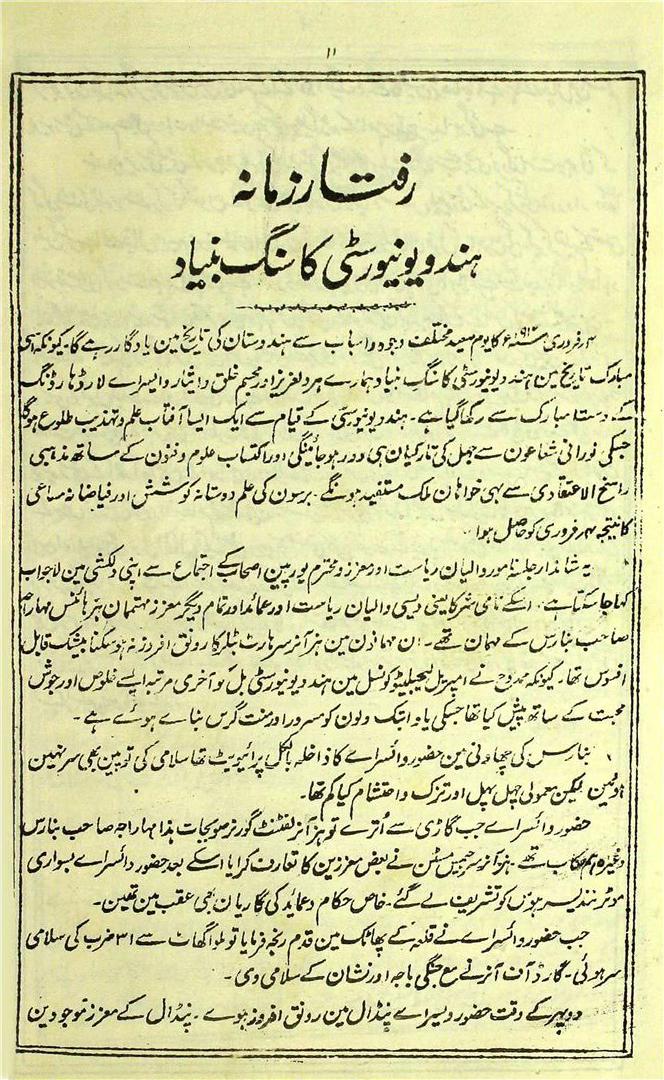 ۱۱
رفتار زمانہ
ہندو یونیورسٹی کا سنگ بنیاد
۴؍فروری ۱۹۱۶ء کا یوم سعید مختلف وجوہ واسباب سے ہندوستان کی تاریخ مین یادگار رہے گا۔ کیونکہ اسی
مبارک تاریخ مین ہندو یونیورسٹی کا سنگ بنیاد ہمارے ہردلعزیز اور مجسم خلق و ایثار وایسراے لارڈ ہارڈنگ
کے دست مبارک سے رکھا گیا ہے۔ ہندو یونیورسٹی کے قیام سے ایک ایسا آفتاب علم و تہذیب طلوع ہوگا
جسکی نورانی شعاعون سے جہل کی تاریکیان ہی دور ہوجائینگی اور اکتساب علوم و فنون کے ساتھ مذہبی
راسخ الاعتقادی سے بہی خواہان ملک مستفید ہونگے۔ برسون کی علم دوستانہ کوشش اور فیاضانہ مساعی
کا نتیجہ ۴؍فروری کو حاصل ہوا۔
یہ شاندار جلسہ نامور والیان ریاست اور معزز و محترم یورپین اصحاب کے اجتماع سے اپنی دلکشی مین لاجواب
کہا جاسکتا ہے۔ اسکے نامی شرکا یعنی دیسی والیان ریاست اور عمائد اور تمام دیگر معزز مہتمان ہز ہائنس مہاراجہ
صاحب بنارس کے مہمان تھے۔ ان مہمانون مین ہز آنر سر ہارٹ بٹلر کا رونق افروز نہ ہوسکنا بیشک قابل
افسوس تھا۔ کیونکہ ممدوح نے امپریل لیجسلیٹو کونسل مین ہندو یونیورسٹی بل کو آخری مرتبہ ایسے خلوص اور جوش
محبت کے ساتھ پیش کیا تھا جسکی یاد ابتک دلون کو مسرور اور منت گرین بناے ہوئے ہے۔
بنارس کی چھاونی مین حضور وائسراے کا داخلہ بالکل پرائیویٹ تھا سلامی کی توپین بھی سر نہین
ہوئین لیکن معمولی چہل پہل اور تزک و احتشام کیا کم تھا۔
حضور وائسراے جب گاڑی سے اُترے تو ہز آنر لفٹنٹ گورنر صوبجات ہذا مہاراجہ صاحب بنارس
وغیرہ ہمرکاب تھے۔ ہز آنر سر جیمس مسٹن نے بعض معززین کا تعارف کرایا اسکے بعد حضور وائسراے بسواری
موٹر نندیسر ہوس کو تشریف لے گئے۔ خاص حکام و عمائد کی گاڑیان بھی عقب مین تھین۔
جب حضور وائسراے نے قلعہ کے پھاٹک مین قدم رنجہ فرمایا تو ملوا گھاٹ سے ۳۱ ضرب کی سلامی
سر ہوئی۔ گارڈ آف آنر نے مع جنگی باجہ اور نشان کے سلامی دی۔
دوپہر کے وقت حضور ویسراے پنڈال مین رونق افروز ہوے۔ پنڈال کے معزز موجودین